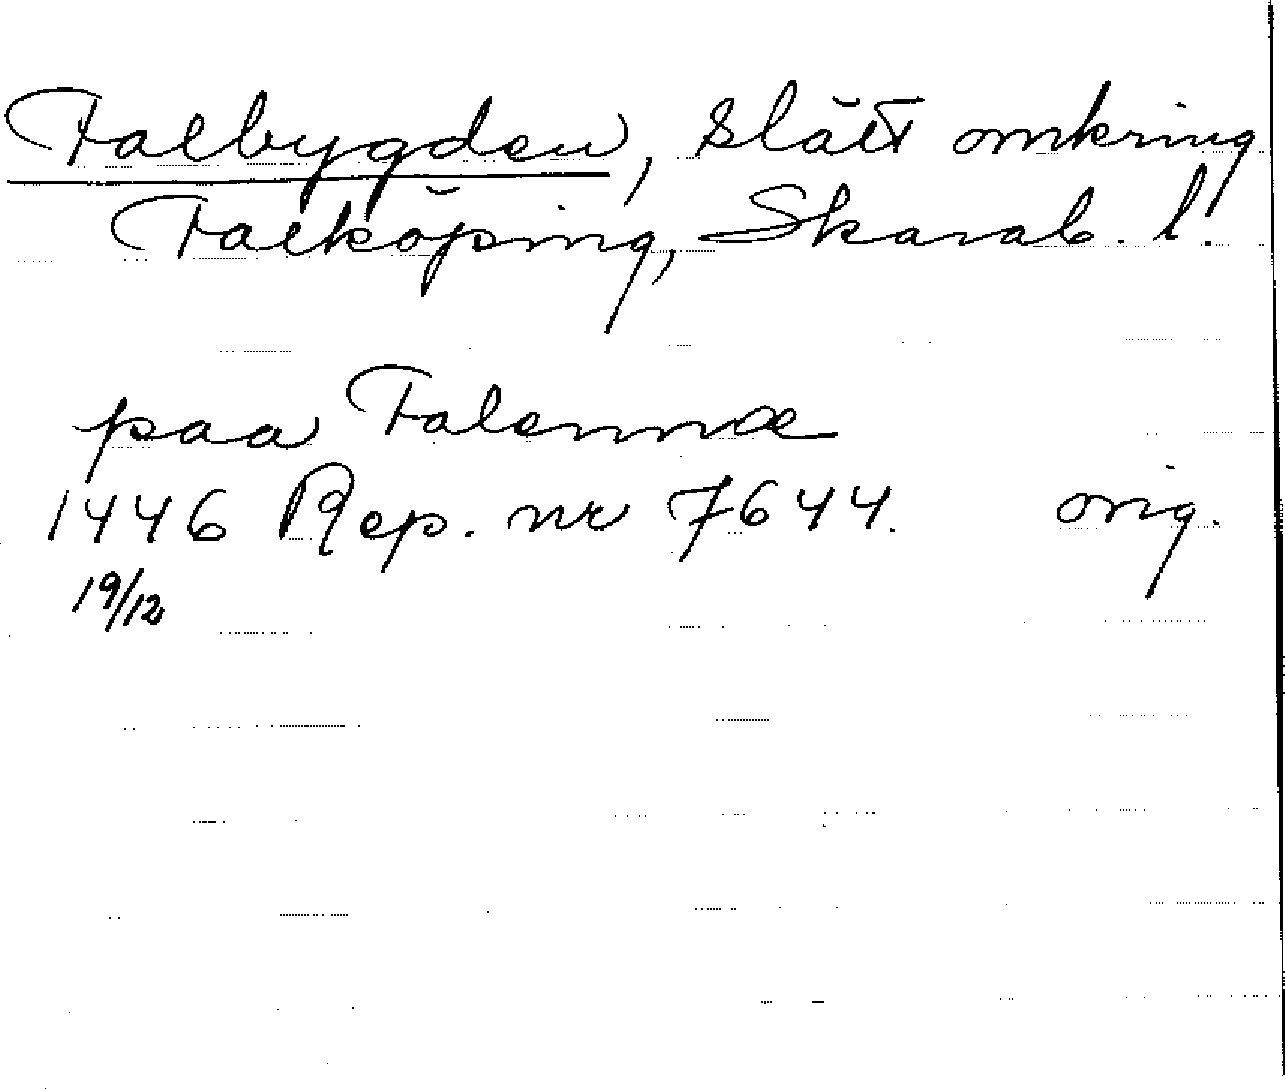 Falbygden, slätt omkring
Falköping, Skarab. l.
paa Falennæ
1446 Rep. nr 7644. orig.
19/12